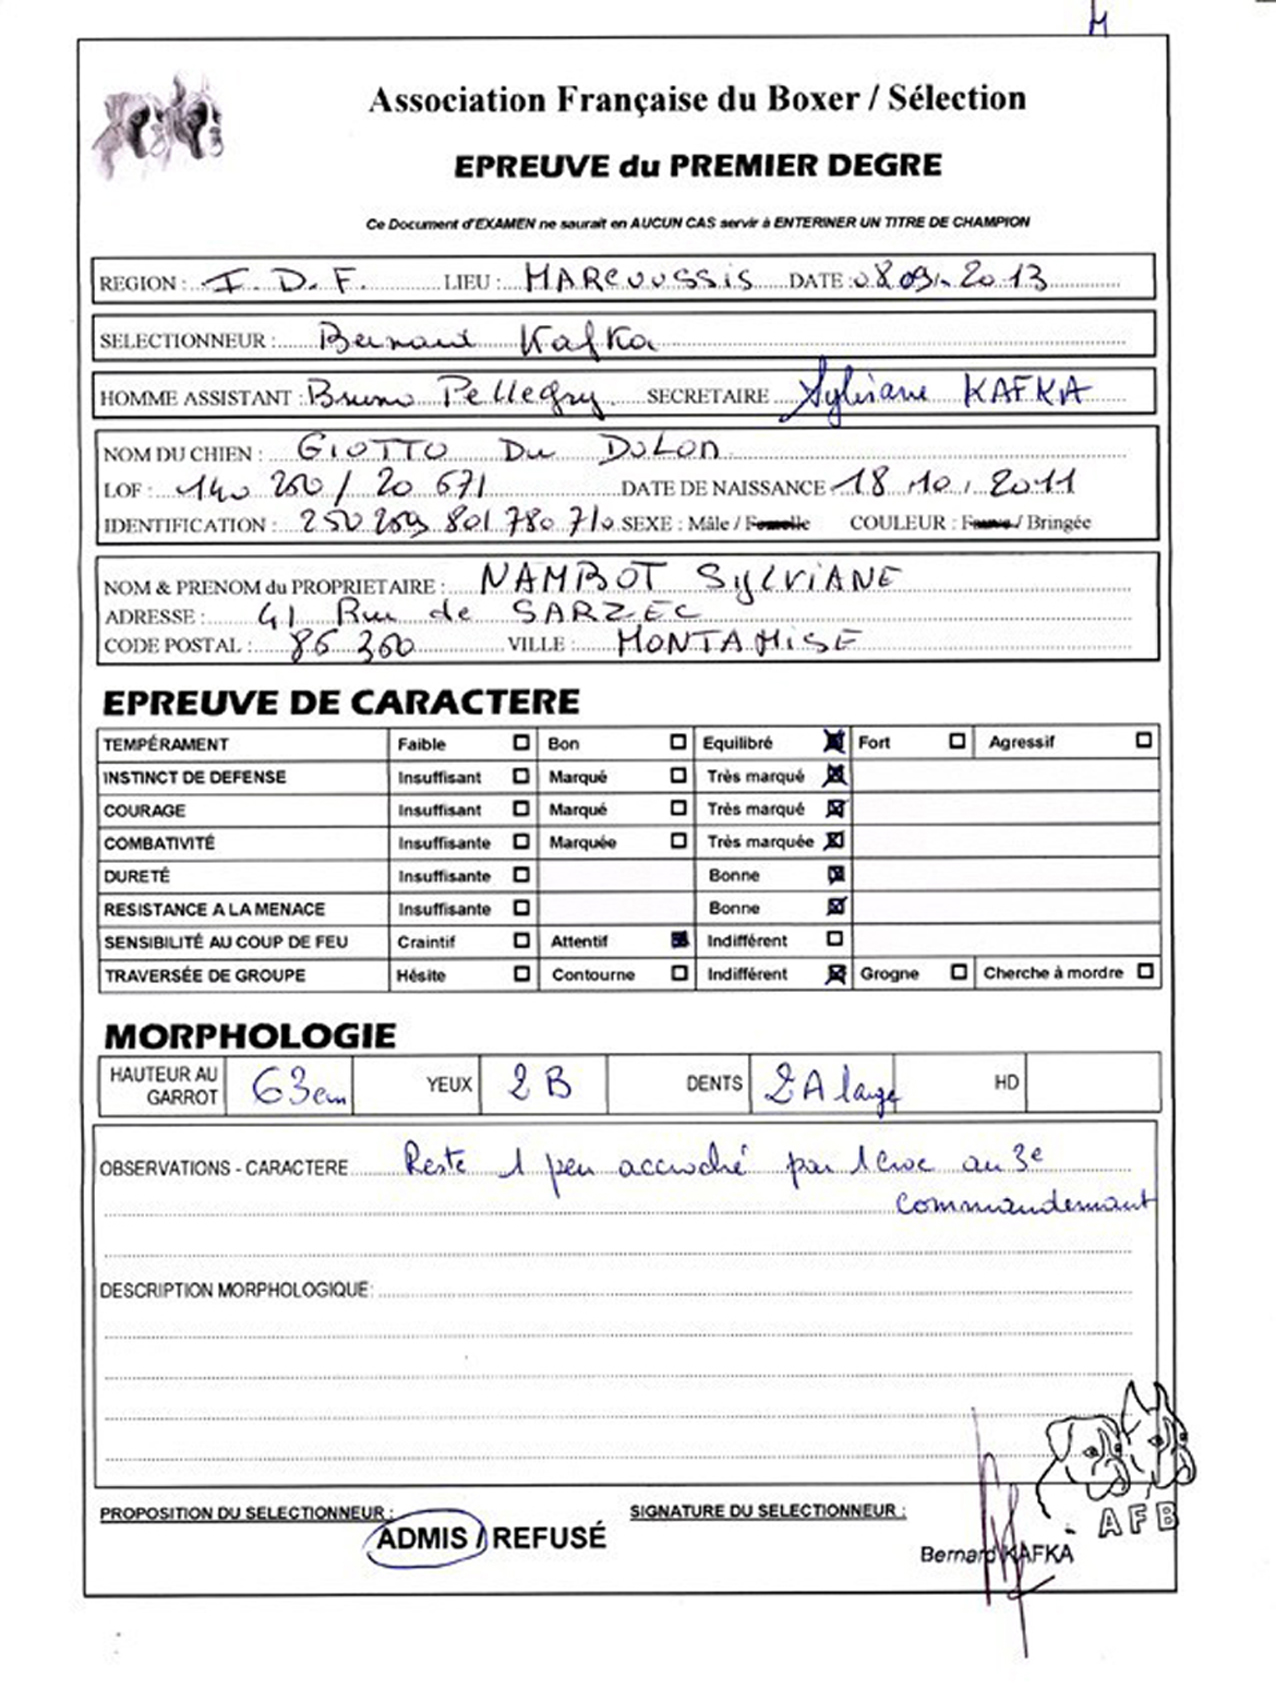 H
Association Française du Boxer / Sélection
EPREUVE du PREMIER DEGRE
Ce Document d'EXAMEN ne saurait en AUCUN CAS servir à ENTERINER UN TITRE DE CHAMPION
REGION : I. D. F. LIEU : MARCOUSSIS DATE : 08.09.2013
SELECTIONNEUR : Bernard Kafka
HOMME ASSISTANT : Bruno Pellegry SECRETAIRE Sylviane KAFKA
NOM DU CHIEN : GIOTTO Du DOLON
LOF : 140 250 / 20 671 DATE DE NAISSANCE 18.10.2011
IDENTIFICATION : 250 269 801 780 710 SEXE : Mâle / Femelle COULEUR : Fauve / Bringée
NOM & PRENOM du PROPRIETAIRE : NAMBOT SYLVIANE
ADRESSE : 41 Rue de SARZEC
CODE POSTAL : 86 360 VILLE : MONTAMISE
EPREUVE DE CARACTERE
TEMPÉRAMENT Faible Bon Equilibré Fort Agressif
INSTINCT DE DEFENSE Insuffisant Marqué Très marqué
COURAGE Insuffisant Marqué Très marqué
COMBATIVITÉ Insuffisante Marquée Très marquée
DURETÉ Insuffisante Bonne
RESISTANCE A LA MENACE Insuffisante Bonne
SENSIBILITÉ AU COUP DE FEU Craintif Attentif Indifférent
TRAVERSÉE DE GROUPE Hésite Contourne Indifférent Grogne Cherche à mordre
MORPHOLOGIE
HAUTEUR AU GARROT 63cm YEUX 2B DENTS 2A large HD
OBSERVATIONS - CARACTERE Reste 1 peu accroché par 1 croc au 3e
commandemant
DESCRIPTION MORPHOLOGIQUE:
PROPOSITION DU SELECTIONNEUR : SIGNATURE DU SELECTIONNEUR :
ADMIS / REFUSÉ
AFB
Bernard KAFKA